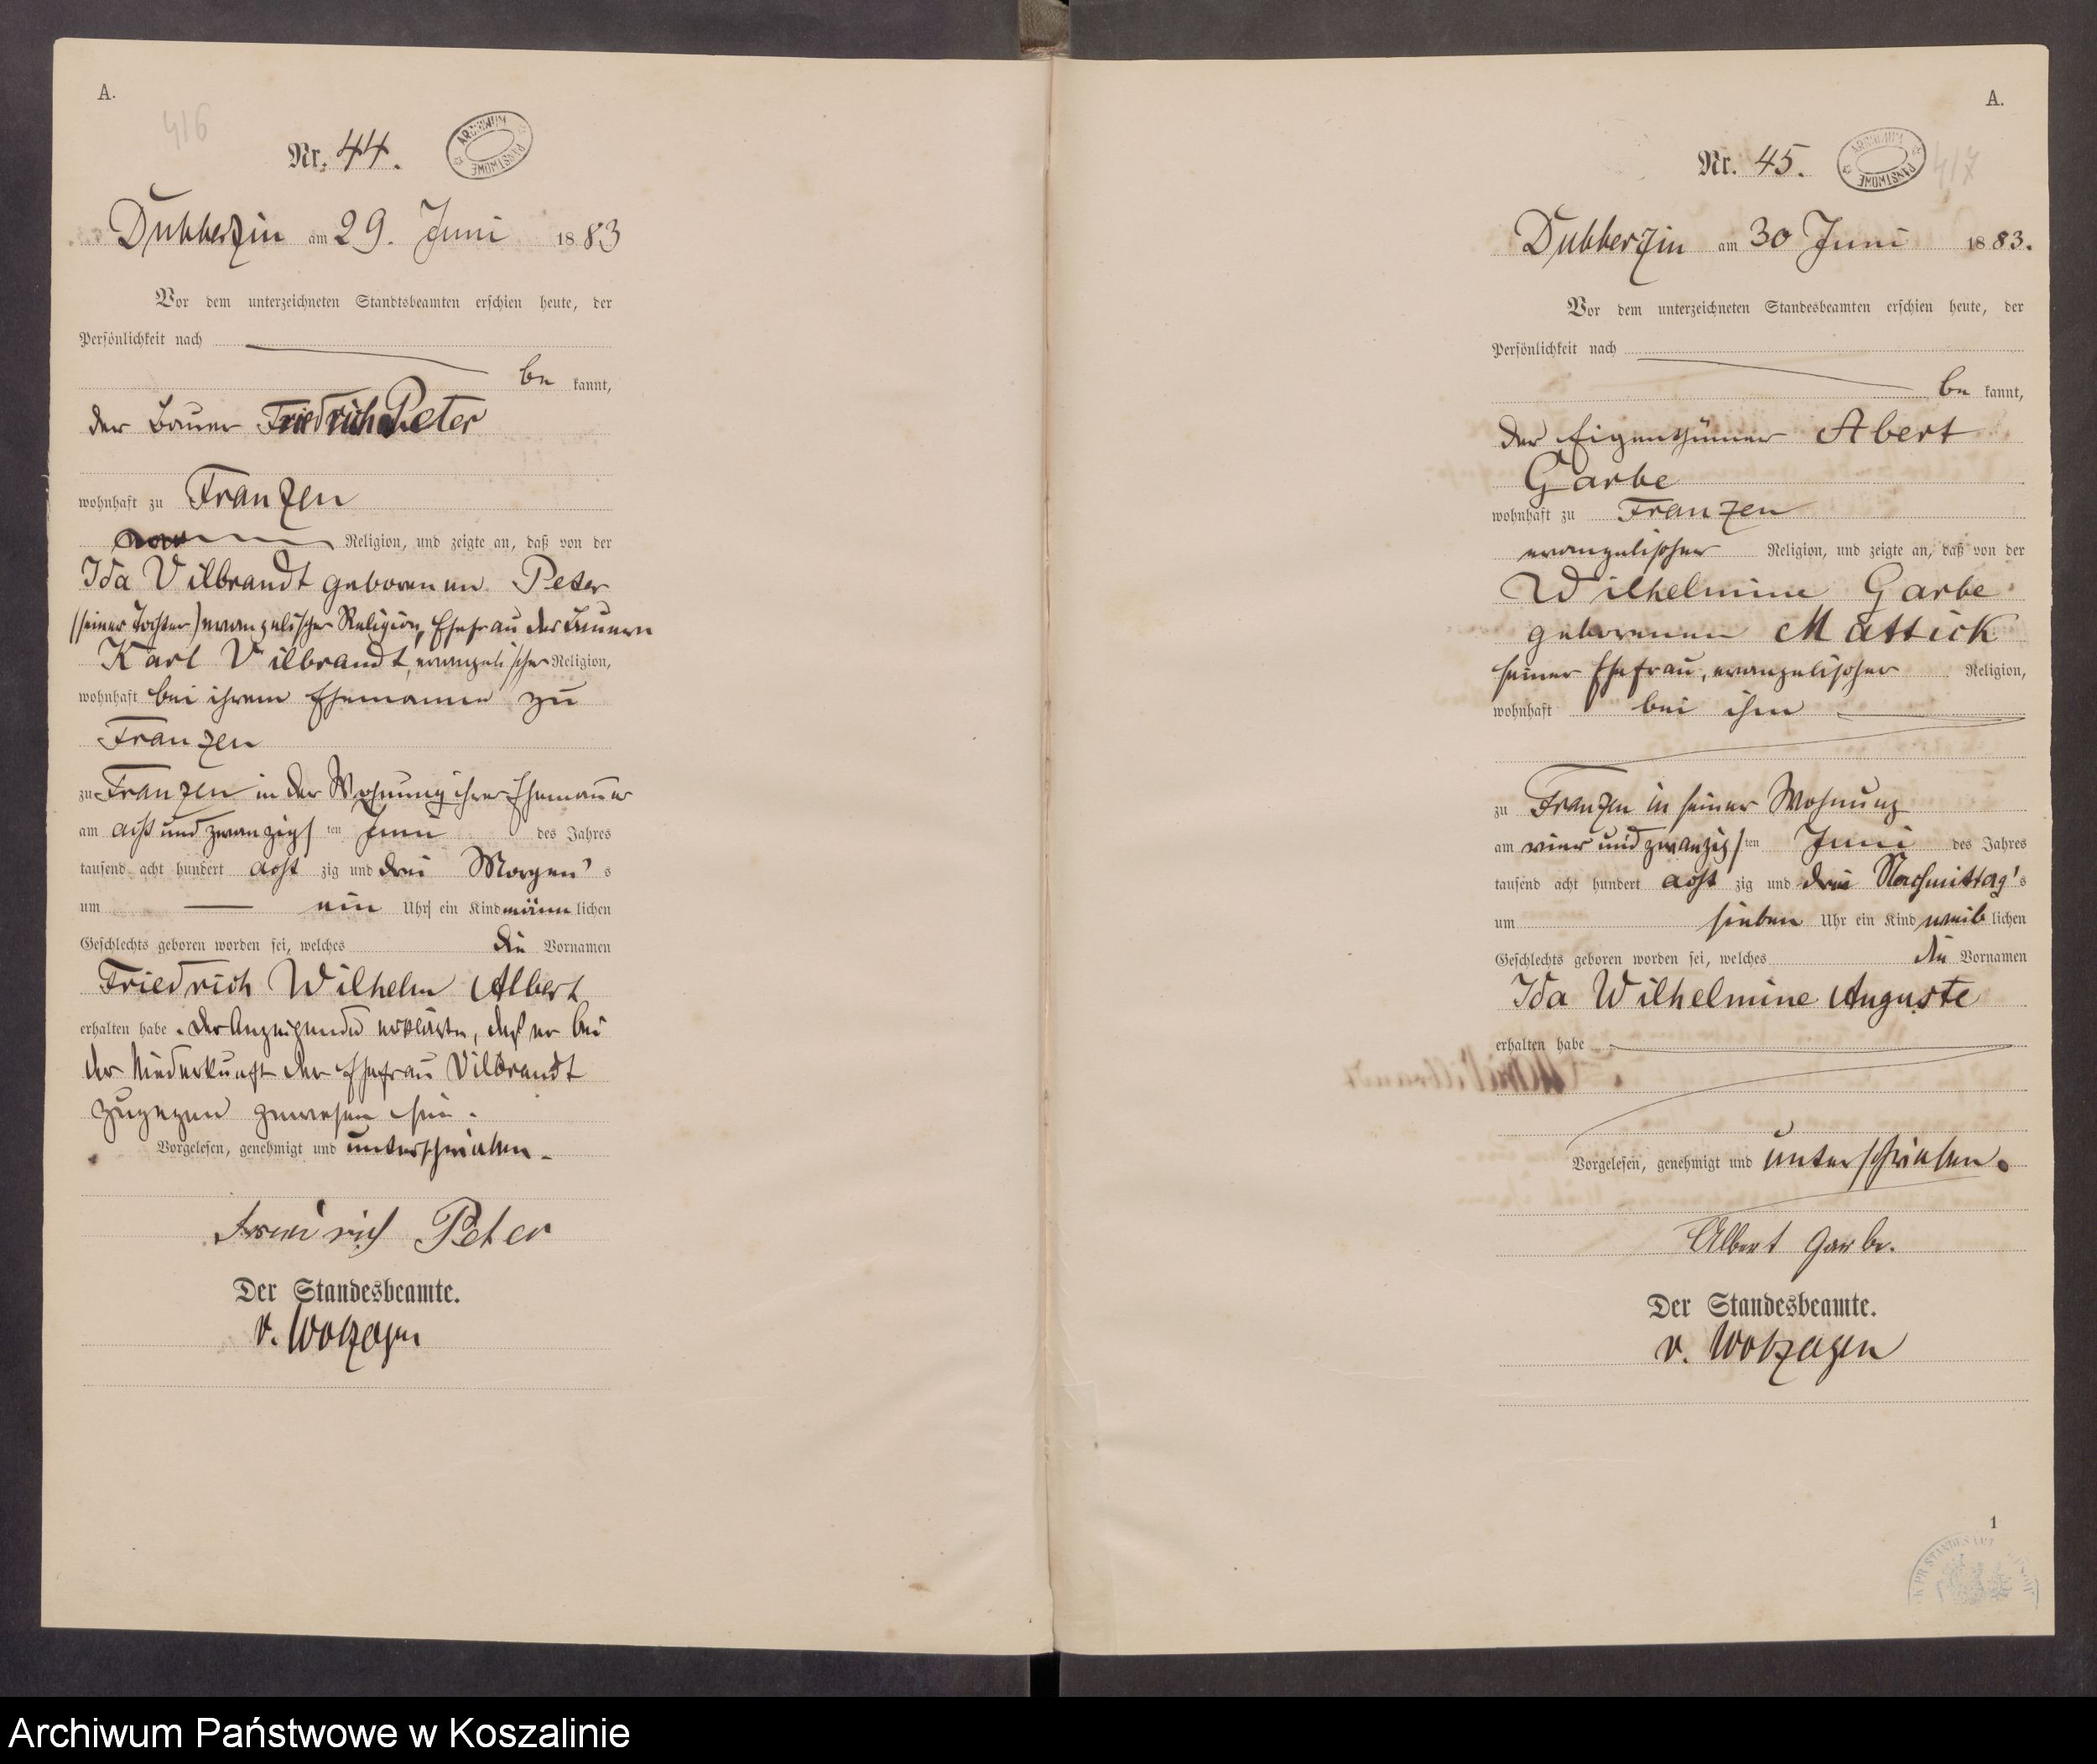 A.
416
Nr. 44.
ARCHIWUM PAŃSTWOWE
Dubberzin am 29. Juni 1883
Vor dem unterzeichneten Standtsbeamten erschien heute, der
Persönlichkeit nach
be kannt,
der Bauer Friedrich Peter
wohnhaft zu Franzen
Religion, und zeigte an, daß von der
Ida Vilbrandt geborenen Peter
(seiner Tochter) evangelischer Religion, Ehefrau des Bauern
Karl Vilbrandt, evangelischer Religion,
wohnhaft bei ihrem Ehemanne zu
Franzen
zu Franzen in der Wohnung ihres Ehemannes
am acht und zwanzigsten Juni des Jahres
tausend acht hundert acht zig und drei Morgen's
um ein Uhr ein Kind männlichen
Geschlechts geboren worden sei, welches die Vornamen
Friedrich Wilhelm Albert
erhalten habe. Der Anzeigende erklärte, daß er bei
der Niederkunft der Ehefrau Vilbrandt
zugegen gewesen sei.
Vorgelesen, genehmigt und unterschrieben.
Friedrich Peter
Der Standesbeamte.
v. Wolzogen
A.
Nr. 45.
ARCHIWUM PAŃSTWOWE
417
Dubberzin am 30 Juni 1883.
Vor dem unterzeichneten Standesbeamten erschien heute, der
Persönlichkeit nach
be kannt,
der Eigenthümer Abert
Garbe
wohnhaft zu Franzen
evangelischer Religion, und zeigte an, daß von der
Wilhelmine Garbe
geborenen Mattick
seiner Ehefrau, evangelischer Religion,
wohnhaft bei ihm
zu Franzen in seiner Wohnung
am vier und zwanzigsten Juni des Jahres
tausend acht hundert acht zig und drei Nachmittag's
um sieben Uhr ein Kind weiblichen
Geschlechts geboren worden sei, welches die Vornamen
Ida Wilhelmine Auguste
erhalten habe
Vorgelesen, genehmigt und unterschrieben.
Albert Garbe.
Der Standesbeamte.
v. Wolzogen
1
Archiwum Państwowe w Koszalinie